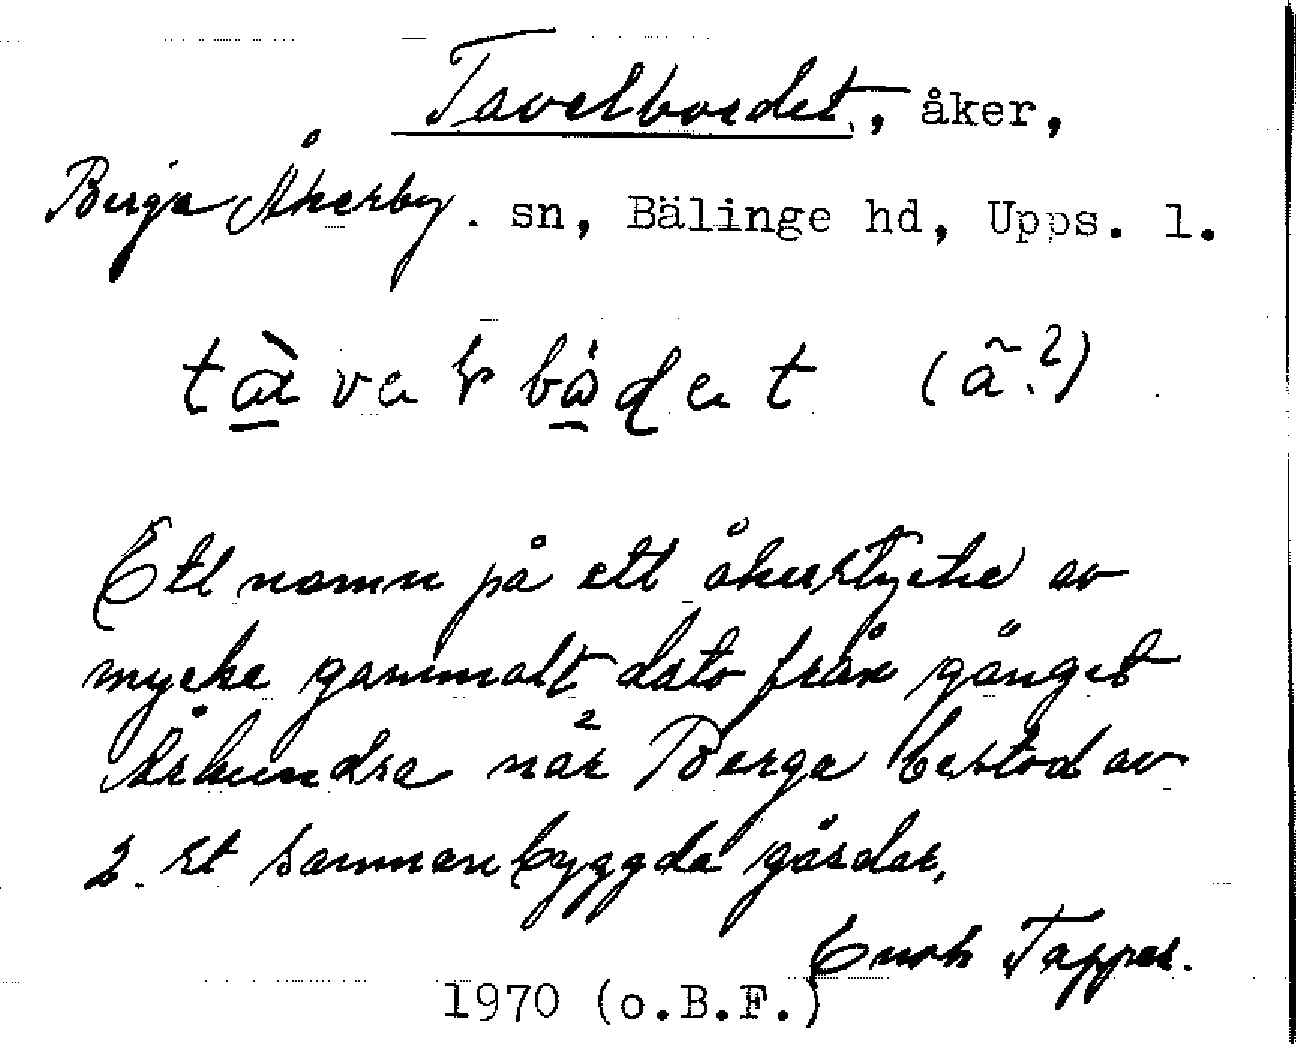 Tavelbordet, åker,
Berga Åkerby. sn, Bälinge hd, Upps. l.
Ett namn på ett åkerstycke av
mycke gammalt dato från gånget
århundra når Berga bestod av
2. st sammanbyggda gårdar.
Enok Tapper.
1970 (o.B.F.)